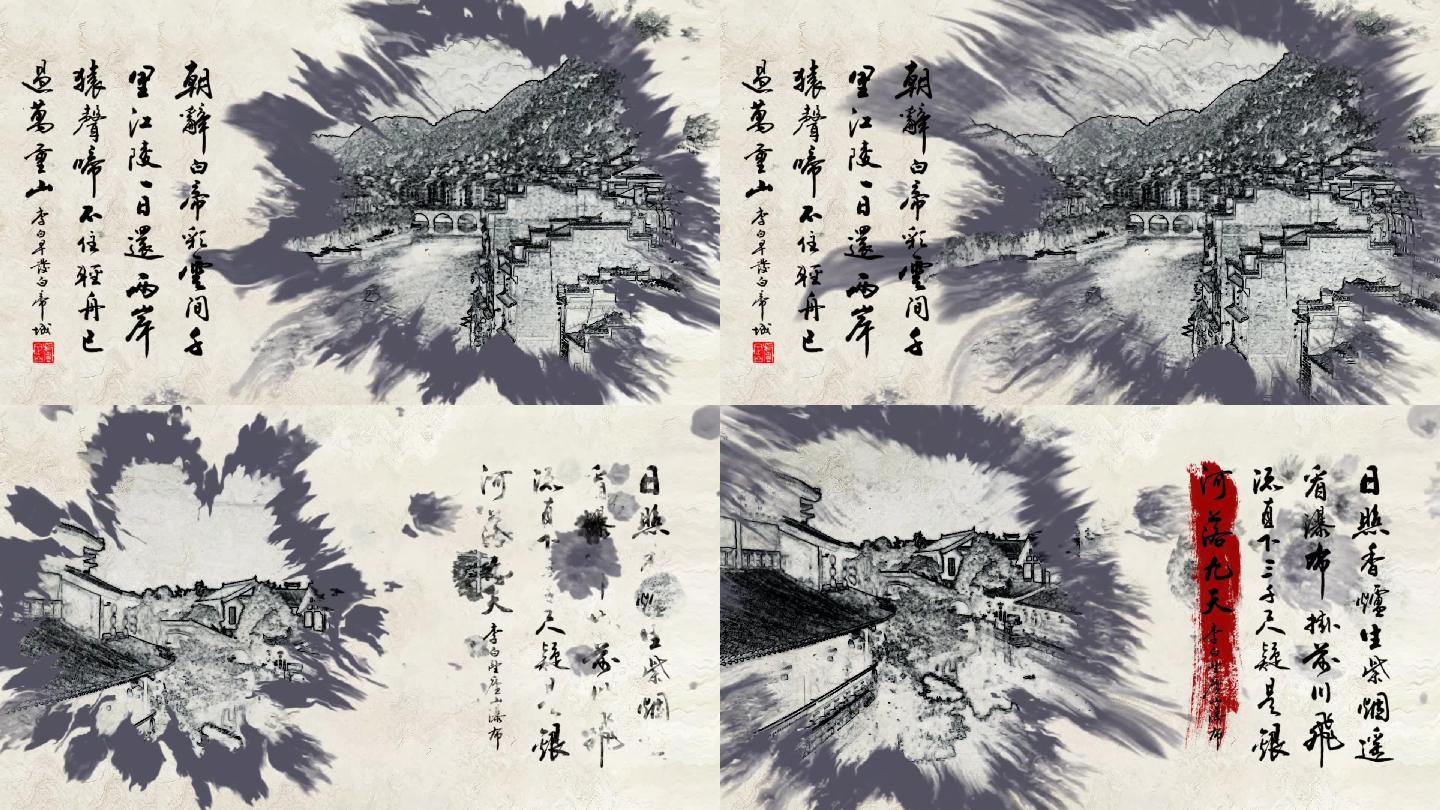 朝辭白帝彩雲間千
里江陵一日還兩岸
猿聲啼不住輕舟已
過萬重山 李白早發白帝城
朝辭白帝彩雲間千
里江陵一日還兩岸
猿聲啼不住輕舟已
過萬重山 李白早發白帝城
日照生紫烟
看瀑前川飛
流直下尺疑銀
河落九天 李白望廬山瀑布
日照香爐生紫烟遙
看瀑布掛前川飛
流直下三千尺疑是銀
河落九天 李白望廬山瀑布